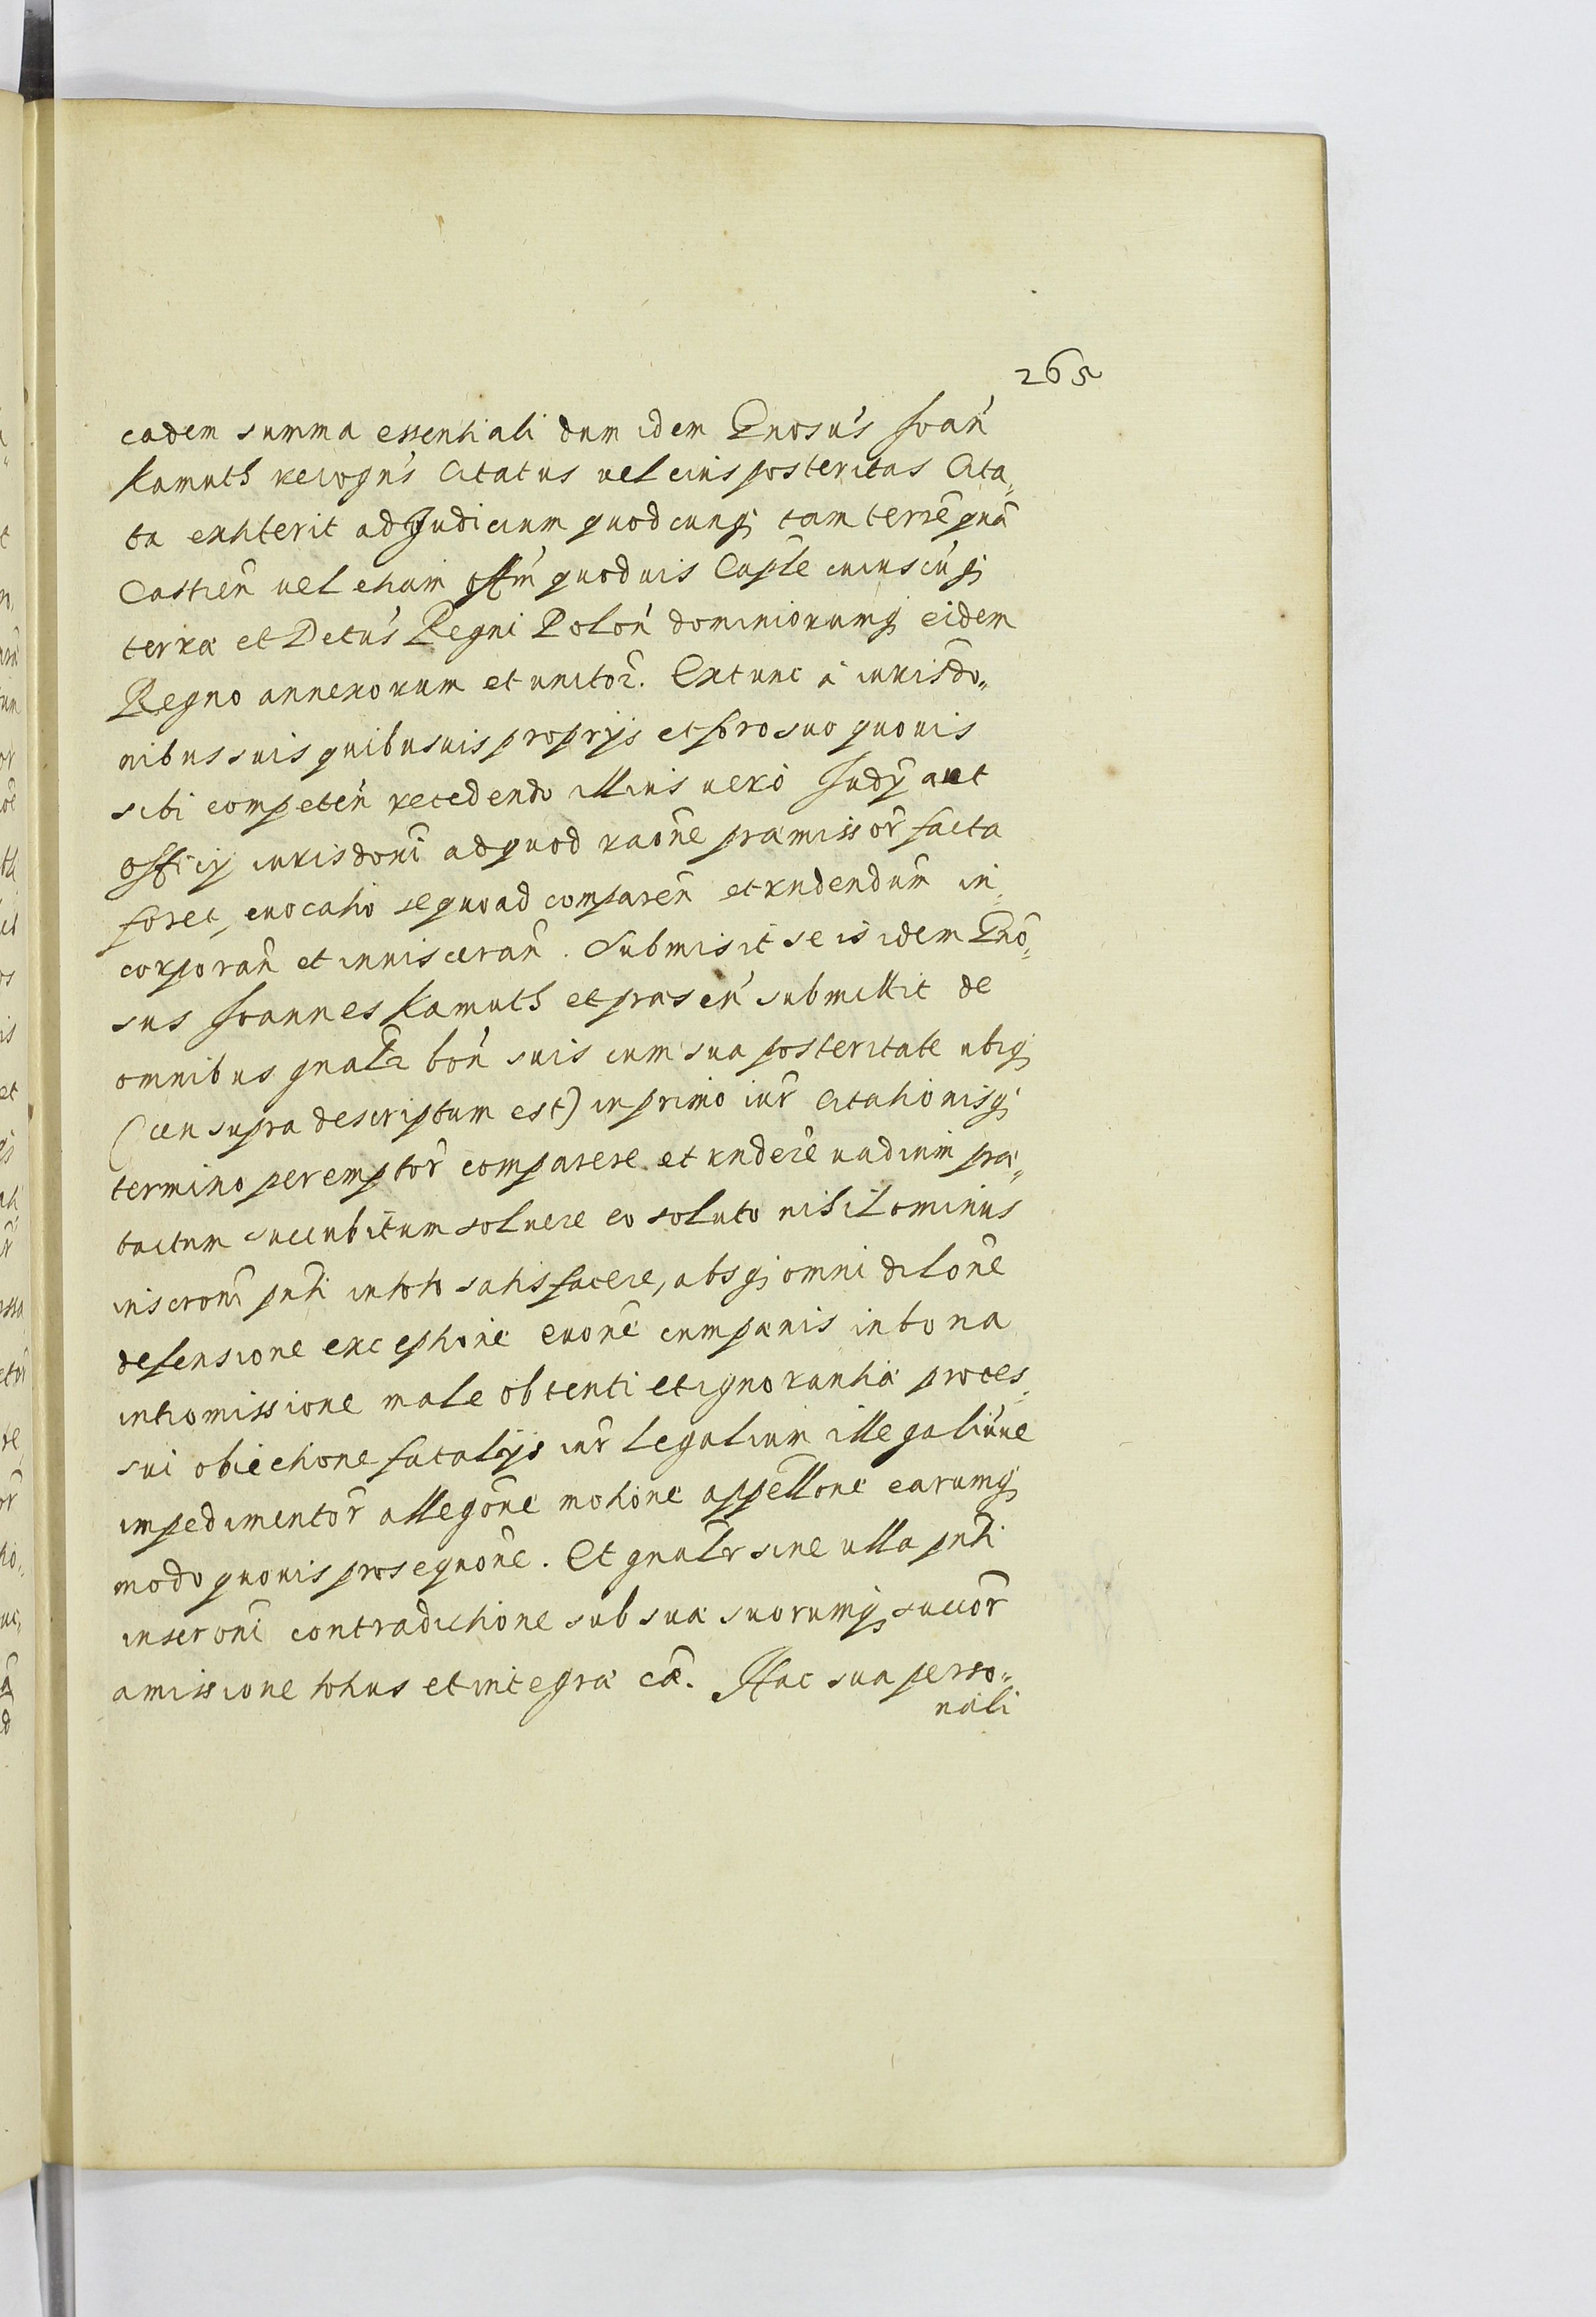 265
eadem summa essentiali dum idem Gnosus Joan̄
Kamuth recogn̄s Citatus uel eius posteritas Cita„
ta extiterit ad Judicium quodcunq; tam terrē quā
Castren̄ uel etiam offm̄ quoduis Caplē cuiuscūq;
terræ et Dctūs Regni Polon̄ dominiorumq; eidem
Regno annexorum et unitor̄. Extunc à iurisdo„
nibus suis quibusuis proprijs et foro suo quouis
sibi competen̄ recedendo illius uerò Judÿ aut
officij iurisdoni ad quod raōne præmissor̄ facta
foret, euocatio se quoad comparen̄ et rndendum̄ in„
corporan̄ et inuisceran̄. Submisit se is idem Gno„
sus Joannes Kamuth et præsen̄ submittit de
omnibus gnalr̄ bon̄ suis cum sua posteritate ubiq;
(ceu supra descriptum est) in primo iur̄ Citationisq;
termino peremptor̄ comparere et rndere uadium præ„
tactum succubitum soluere eo soluto nihilominus
inscroni pnti in toto satisfacere, absq; omni dilōne
defensione exceptione euōne cum pænis in bona
intromissione male obtenti et ignorantiæ proces„
sui obiectione fatalijs iur̄ legalium illegaliūue
impedimentor̄ allegōne motione appellōne earumq;
modo quouis prosequōne. Et gnalr̄ sine ulla pnti
inscroni contradictione sub sua suorumq; succor̄
amissione totius et integræ cæ. Hac sua perso„
nali